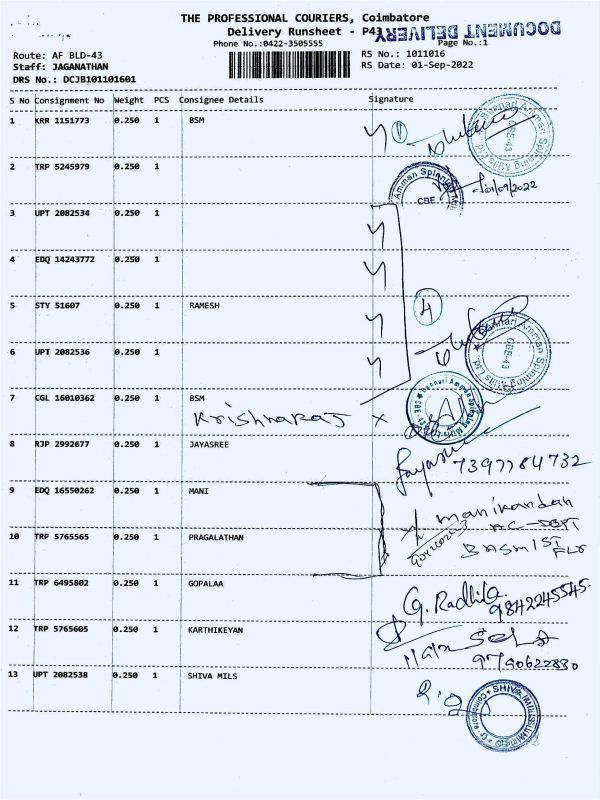 THE PROFESSIONAL COURIERS, Coimbatore
Delivery Runsheet - P43
DOCUMENT DELIVERY
Phone No.:0422-3505555
Page No.:1
Route: AF BLD-43
RS No.: 1011016
Staff: JAGANATHAN
RS Date: 01-Sep-2022
DRS No.: DCJB101101601
S No Consignment No Weight PCS Consignee Details Signature
1 KRR 1151773 0.250 1 BSM
1
Bannari Amman Spinning Mills Ltd. CBE-43
2 TRP 5245979 0.250 1
Amman Spinning CBE
01/09/2022
3 UPT 2082534 0.250 1
4 EDQ 14243772 0.250 1
5 STY 51607 0.250 1 RAMESH
4
6 UPT 2082536 0.250 1
Bannari Amman Spinning Mills Ltd. CBE-43
7 CGL 16010362 0.250 1 BSM
Krishnaraj x
Bannari Amman Spinning Mills
8 RJP 2992677 0.250 1 JAYASREE
Jayasree
7397784732
9 EDQ 16550262 0.250 1 MANI
manikandan
10 TRP 5765565 0.250 1 PRAGALATHAN
AC-DEPT
BASM IST
FLR
11 TRP 6495802 0.250 1 GOPALAA
G. Radha
9842245545
12 TRP 5765605 0.250 1 KARTHIKEYAN
9790622830
13 UPT 2082538 0.250 1 SHIVA MILS
SHIVA MILLS LIMITED